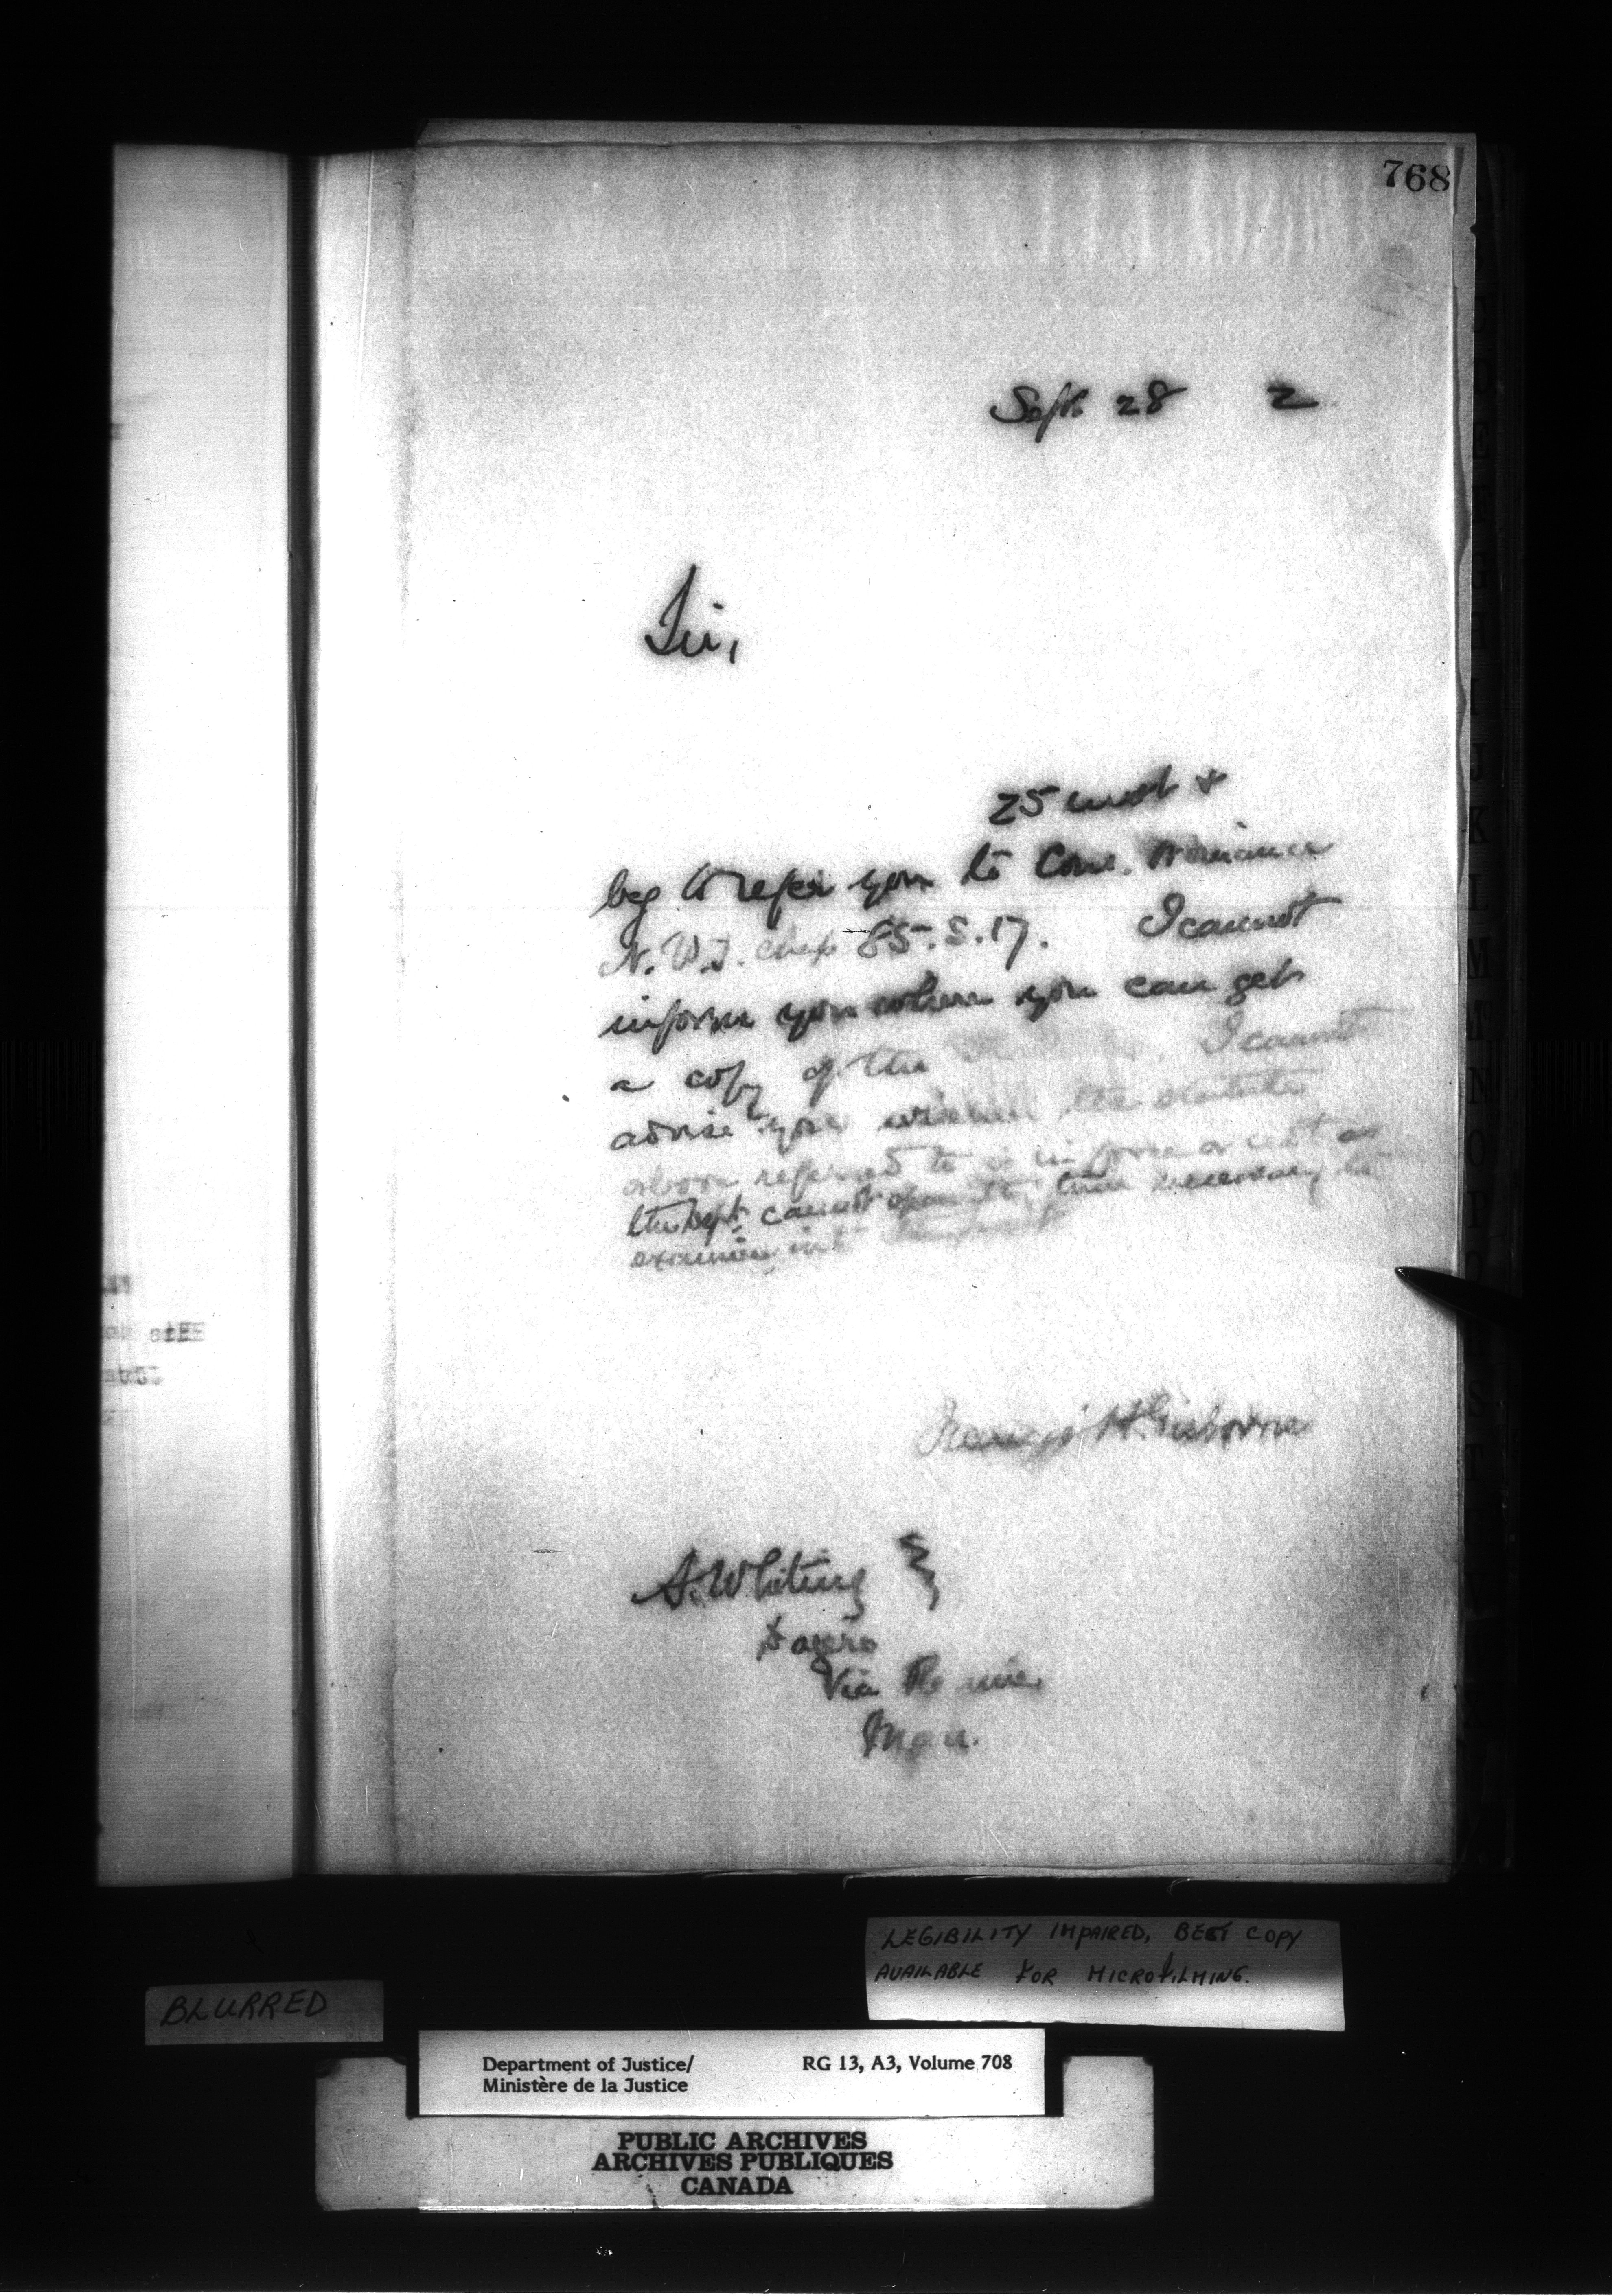 768
Sept 28 2
Sir,
25 inst &
beg to refer you to Con. Ordinance
N. W. T. Chap 85. S. 17. I cannot
inform you where you can get
a copy of the I cannot
advise you whether the statute
above referred to is in force or not as
the Dept. cannot the time necessary to
examine into
Francis H. Gisborne
A. Whiting
Via
Man.
BLURRED
LEGIBILITY IMPAIRED, BEST COPY
AVAILABLE FOR MICROFILMING.
Department of Justice/ RG 13, A3, Volume 708
Ministère de la Justice
PUBLIC ARCHIVES
ARCHIVES PUBLIQUES
CANADA